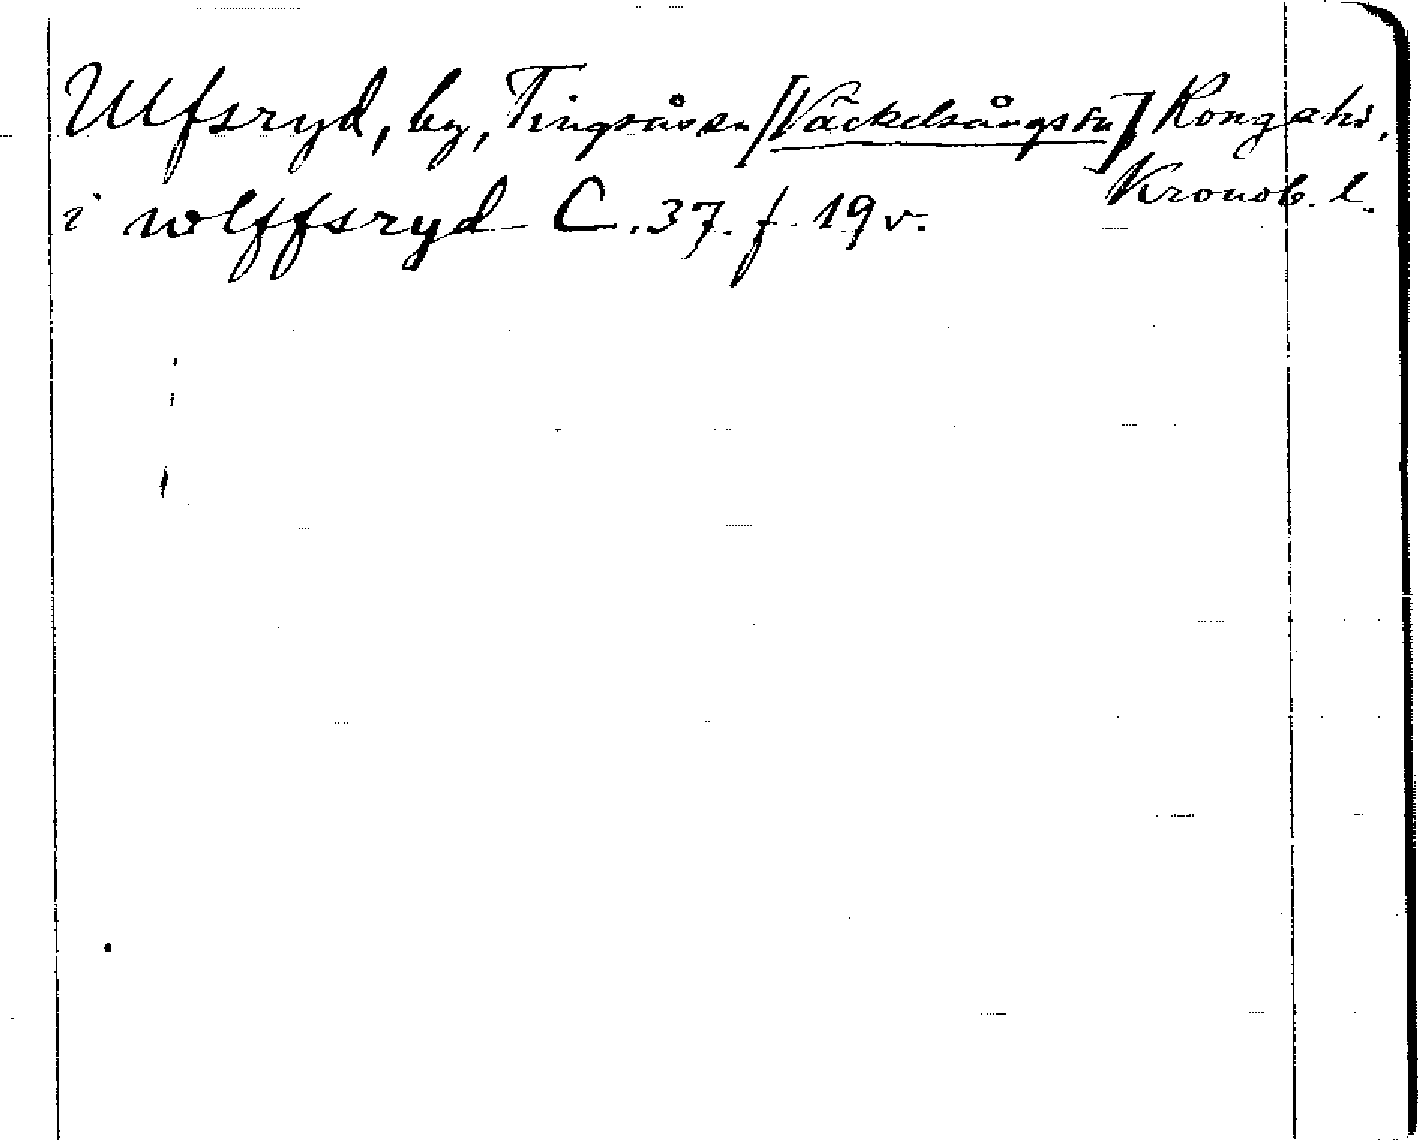 Ulfsryd, by, Tingsås sn [Väckelsångs sn] Konga hd,
Kronob. l.
i wlffsryd C. 37. f. 19 v.